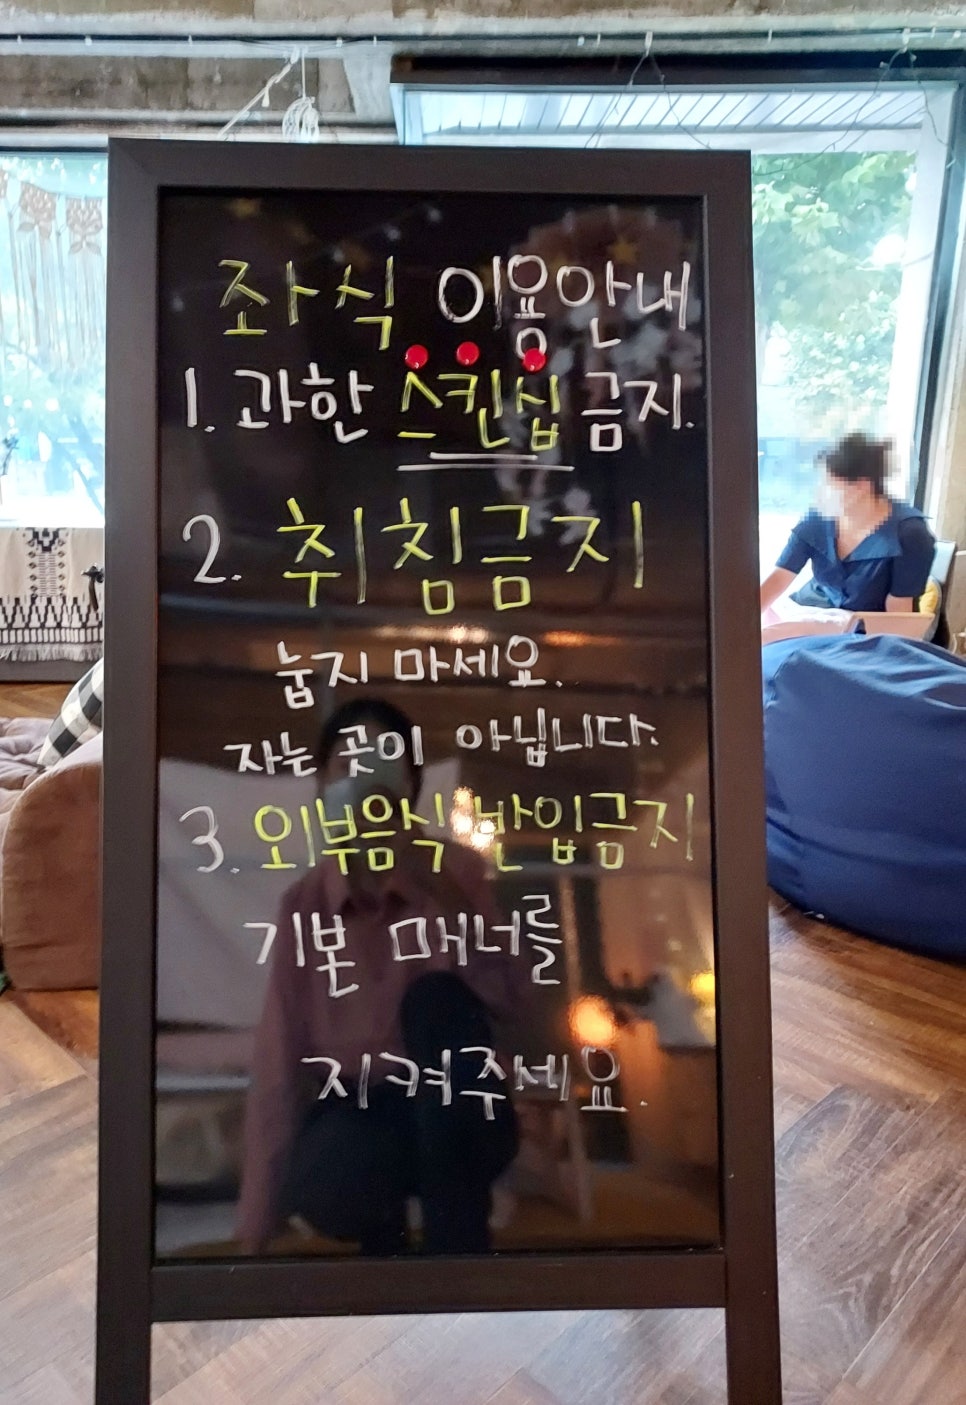 좌식 이용안내
1. 과한 스킨십 금지.
2. 취침금지
눕지 마세요.
자는 곳이 아닙니다.
3. 외부음식 반입금지
기본 매너를
지켜주세요.